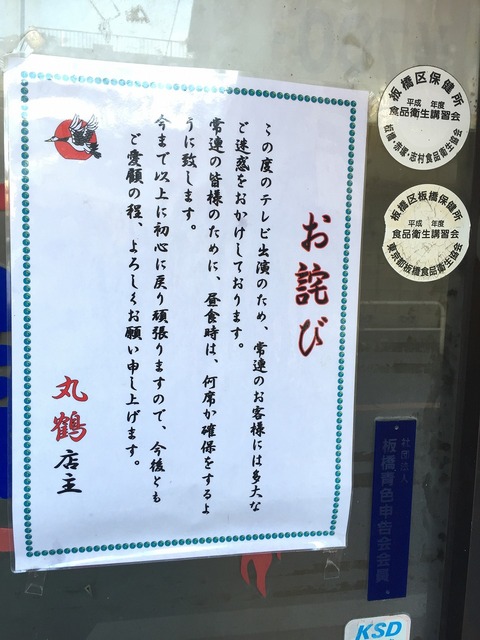 お詫び
この度のテレビ出演のため、常連のお客様には多大な
ご迷惑をおかけしております。
常連の皆様のために、昼食時は、何席か確保をするよ
うに致します。
今まで以上に初心に戻り頑張りますので、今後とも
ご愛顧の程、よろしくお願い申し上げます。
丸鶴店主
板橋区保健所
平成 年度
食品衛生講習会
板橋・赤塚・志村食品衛生協会
板橋区板橋保健所
平成 年度
食品衛生講習会
東京都板橋食品衛生協会
社団法人
板橋青色申告会会員
KSD